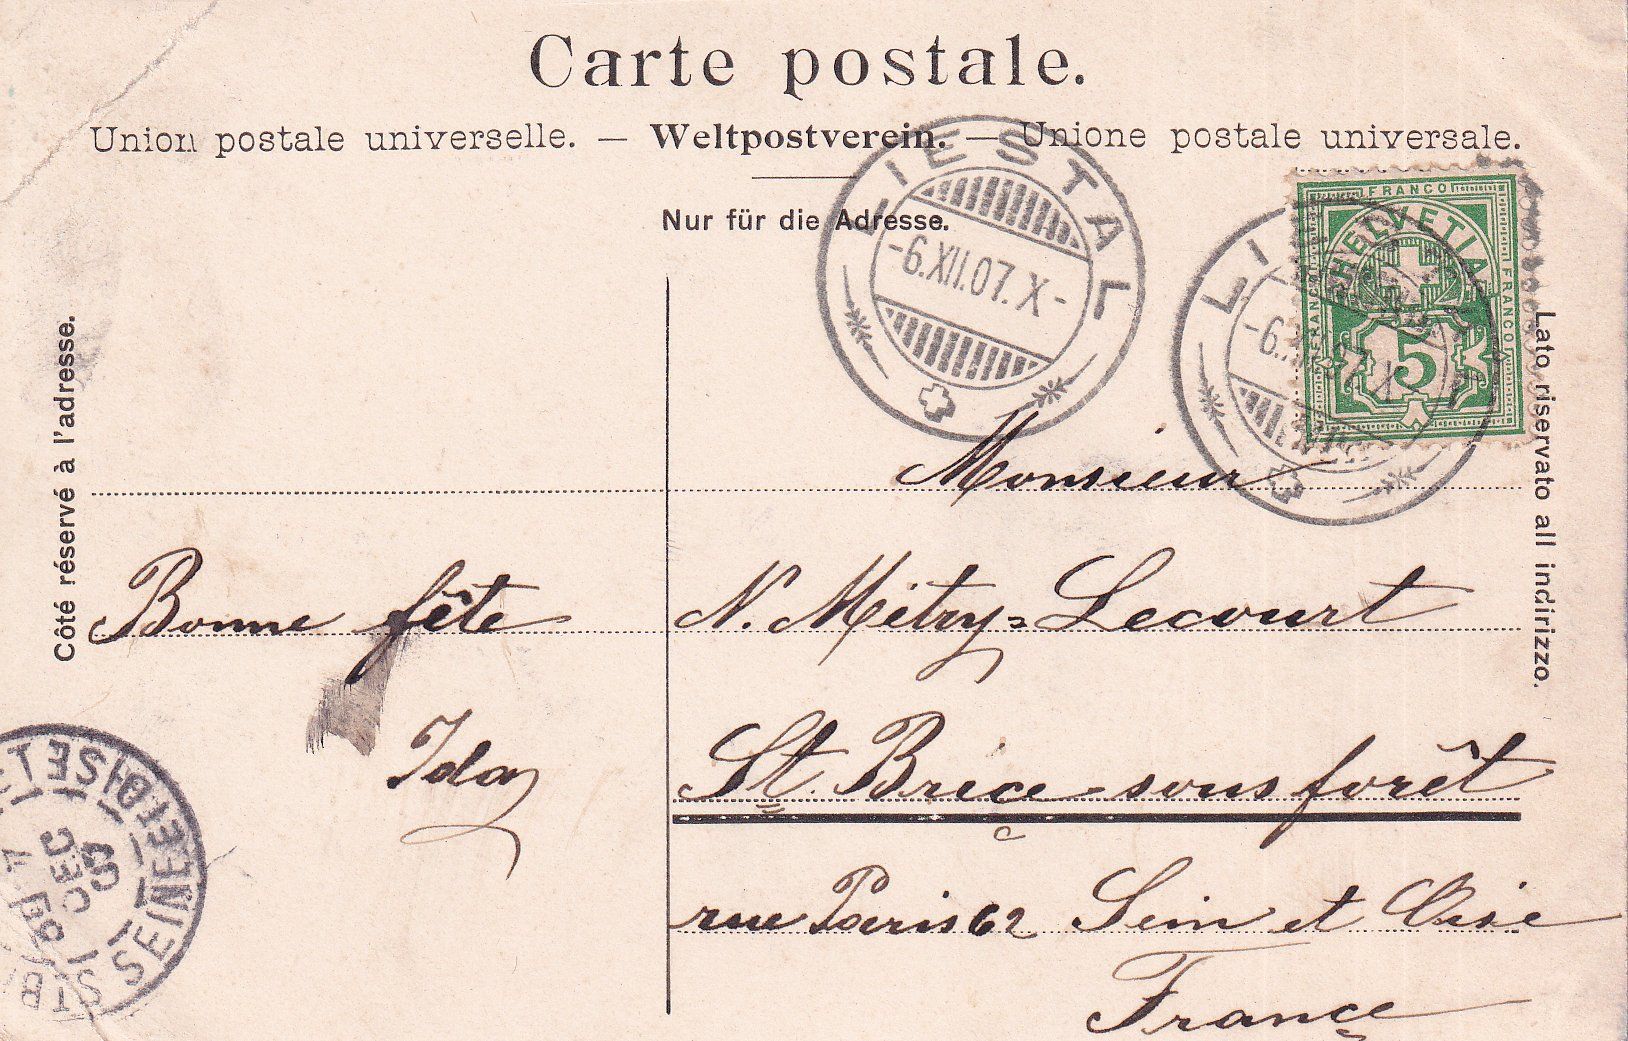 Carte postale.
Union postale universelle. — Weltpostverein. — Unione postale universale.
Nur für die Adresse.
Côté réservé à l'adresse.
Lato riservato all indirizzo.
LIESTAL
-6.XII.07.X-
FRANCO
HELVETIA
FRANCO
FRANCO
5
LI
-6.
07.X
Monsieur
Bonne fête
Ida
N. Métry=Lecourt
St. Brice sous forêt
rue Paris 62 Sein et Oise
France
SEINE ET OISE
DEC